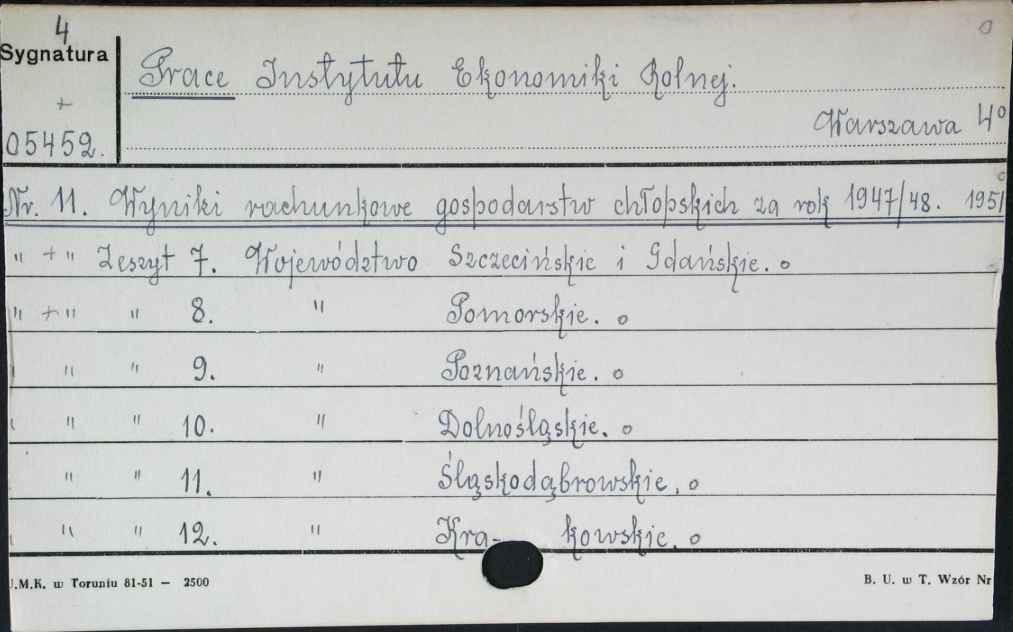 4
Sygnatura
+
05452.
Prace Instytutu Ekonomiki Rolnej.
Warszawa 4°
Nr. 11. Wyniki rachunkowe gospodarstw chłopskich za rok 1947/48. 1951
" + " Zeszyt 7. Województwo Szczecińskie i Gdańskie. o
" + " " 8. " Pomorskie. o
" " 9. " Poznańskie. o
" " 10. " Dolnośląskie. o
" " 11. " Śląskodąbrowskie. o
" " 12. " Kra- kowskie. o
U.M.K. w Toruniu 81-51 — 2500
B. U. w T. Wzór Nr